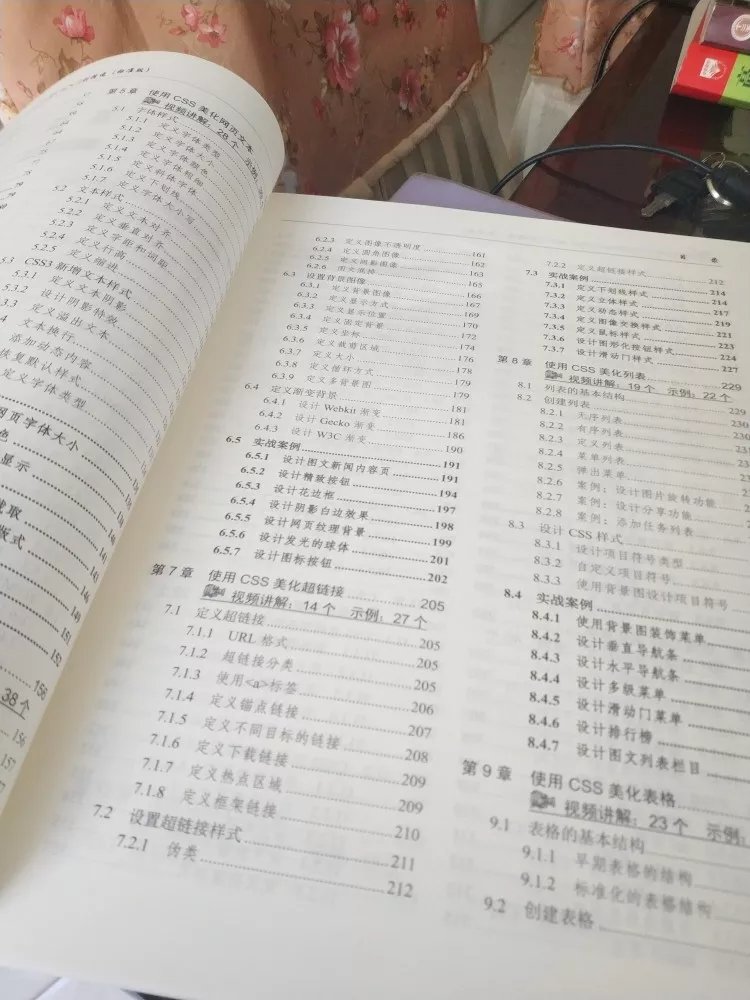 第5章 使用CSS美化网页文本
视频讲解：28个 示
5.1 字体样式
5.1.1 定义字体类型
5.1.2 定义字体大小
5.1.3 定义字体颜色
5.1.4 定义字体粗细
5.1.5 定义斜体字体
5.1.6 定义下划线
5.1.7 定义字体大小写
5.2 文本样式
5.2.1 定义文本对齐
5.2.2 定义垂直对齐
5.2.3 定义字距和词距
5.2.4 定义行高
5.2.5 定义缩进
5.3 CSS3新增文本样式
5.3.1 定义文本阴影
5.3.2 设计阴影特效
定义溢出文本
文本换行
添加动态内容
恢复默认样式
定义字体类型
网页字体大小
色
显示
截取
版式
156
38个
156
157
6.2.3 定义图像不透明度 161
6.2.4 定义圆角图像 162
6.2.5 定义阴影图像 163
6.2.6 图文混排 165
6.3 设置背景图像 166
6.3.1 定义背景图像 167
6.3.2 定义显示方式 169
6.3.3 定义显示位置 170
6.3.4 定义固定背景 172
6.3.5 定义坐标 174
6.3.6 定义裁剪区域 176
6.3.7 定义大小 178
6.3.8 定义循环方式 179
6.3.9 定义多背景图 179
6.4 定义渐变背景 181
6.4.1 设计Webkit渐变 181
6.4.2 设计Gecko渐变 186
6.4.3 设计W3C渐变 190
6.5 实战案例 191
6.5.1 设计图文新闻内容页 191
6.5.2 设计精致按钮 194
6.5.3 设计花边框 197
6.5.4 设计阴影白边效果 198
6.5.5 设计网页纹理背景 199
6.5.6 设计发光的球体 201
6.5.7 设计图标按钮 202
第7章 使用CSS美化超链接 205
视频讲解：14个 示例：27个
7.1 定义超链接 205
7.1.1 URL格式 205
7.1.2 超链接分类 205
7.1.3 使用<a>标签 206
7.1.4 定义锚点链接 207
7.1.5 定义不同目标的链接 208
7.1.6 定义下载链接 209
7.1.7 定义热点区域 209
7.1.8 定义框架链接 210
7.2 设置超链接样式 211
7.2.1 伪类 212
目 录
7.2.2 定义超链接样式 212
7.3 实战案例 214
7.3.1 定义下划线样式 214
7.3.2 定义立体样式 217
7.3.3 定义动态样式 219
7.3.4 定义图像交换样式 221
7.3.5 定义鼠标样式 223
7.3.6 设计图形化按钮样式 224
7.3.7 设计滑动门样式 227
第8章 使用CSS美化列表 229
视频讲解：19个 示例：22个
8.1 列表的基本结构 229
8.2 创建列表 230
8.2.1 无序列表 230
8.2.2 有序列表
8.2.3 定义列表
8.2.4 菜单列表
8.2.5 弹出菜单
8.2.6 案例：设计图片旋转功能
8.2.7 案例：设计分享功能
8.2.8 案例：添加任务列表
8.3 设计CSS样式
8.3.1 设计项目符号类型
8.3.2 自定义项目符号
8.3.3 使用背景图设计项目符号
8.4 实战案例
8.4.1 使用背景图装饰菜单
8.4.2 设计垂直导航条
8.4.3 设计水平导航条
8.4.4 设计多级菜单
8.4.5 设计滑动门菜单
8.4.6 设计排行榜
8.4.7 设计图文列表栏目
第9章 使用CSS美化表格
视频讲解：23个 示例：
9.1 表格的基本结构
9.1.1 早期表格的结构
9.1.2 标准化的表格结构
9.2 创建表格